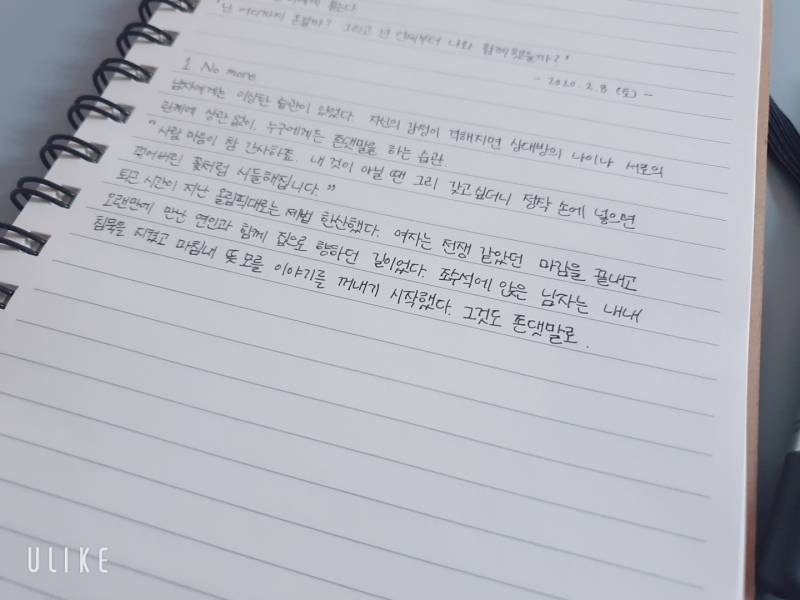 묻는다.
"난 어디까지 온걸까? 그리고 넌 언제부터 나와 함께했을까?"
- 2020. 2. 8 (토) -
1. No more
남자에게는 이상한 습관이 있었다. 자신의 감정이 격해지면 상대방의 나이나 서로의
관계에 상관 없이, 누구에게든 존댓말을 하는 습관.
"사람 마음이 참 간사하죠. 내 것이 아닐 땐 그리 갖고싶더니 정작 손에 넣으면
꺾어버린 꽃처럼 시들해집니다."
퇴근 시간이 지난 올림픽대로는 제법 한산했다. 여자는 전쟁 같았던 마감을 끝내고
오랜만에 만난 연인과 함께 집으로 향하던 길이었다. 조수석에 앉은 남자는 내내
침묵을 지켰고 마침내 뜻 모를 이야기를 꺼내기 시작했다. 그것도 존댓말로.
ULIKE